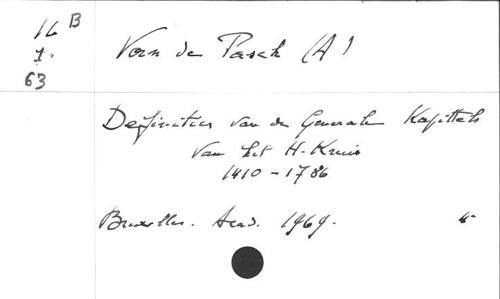 16 B
1.
63
Vorn de Pasch (A)
Definities van de Generale Kapittels
van het H. Kruis
1410 - 1786
Bruxelles. Acad. 1969.